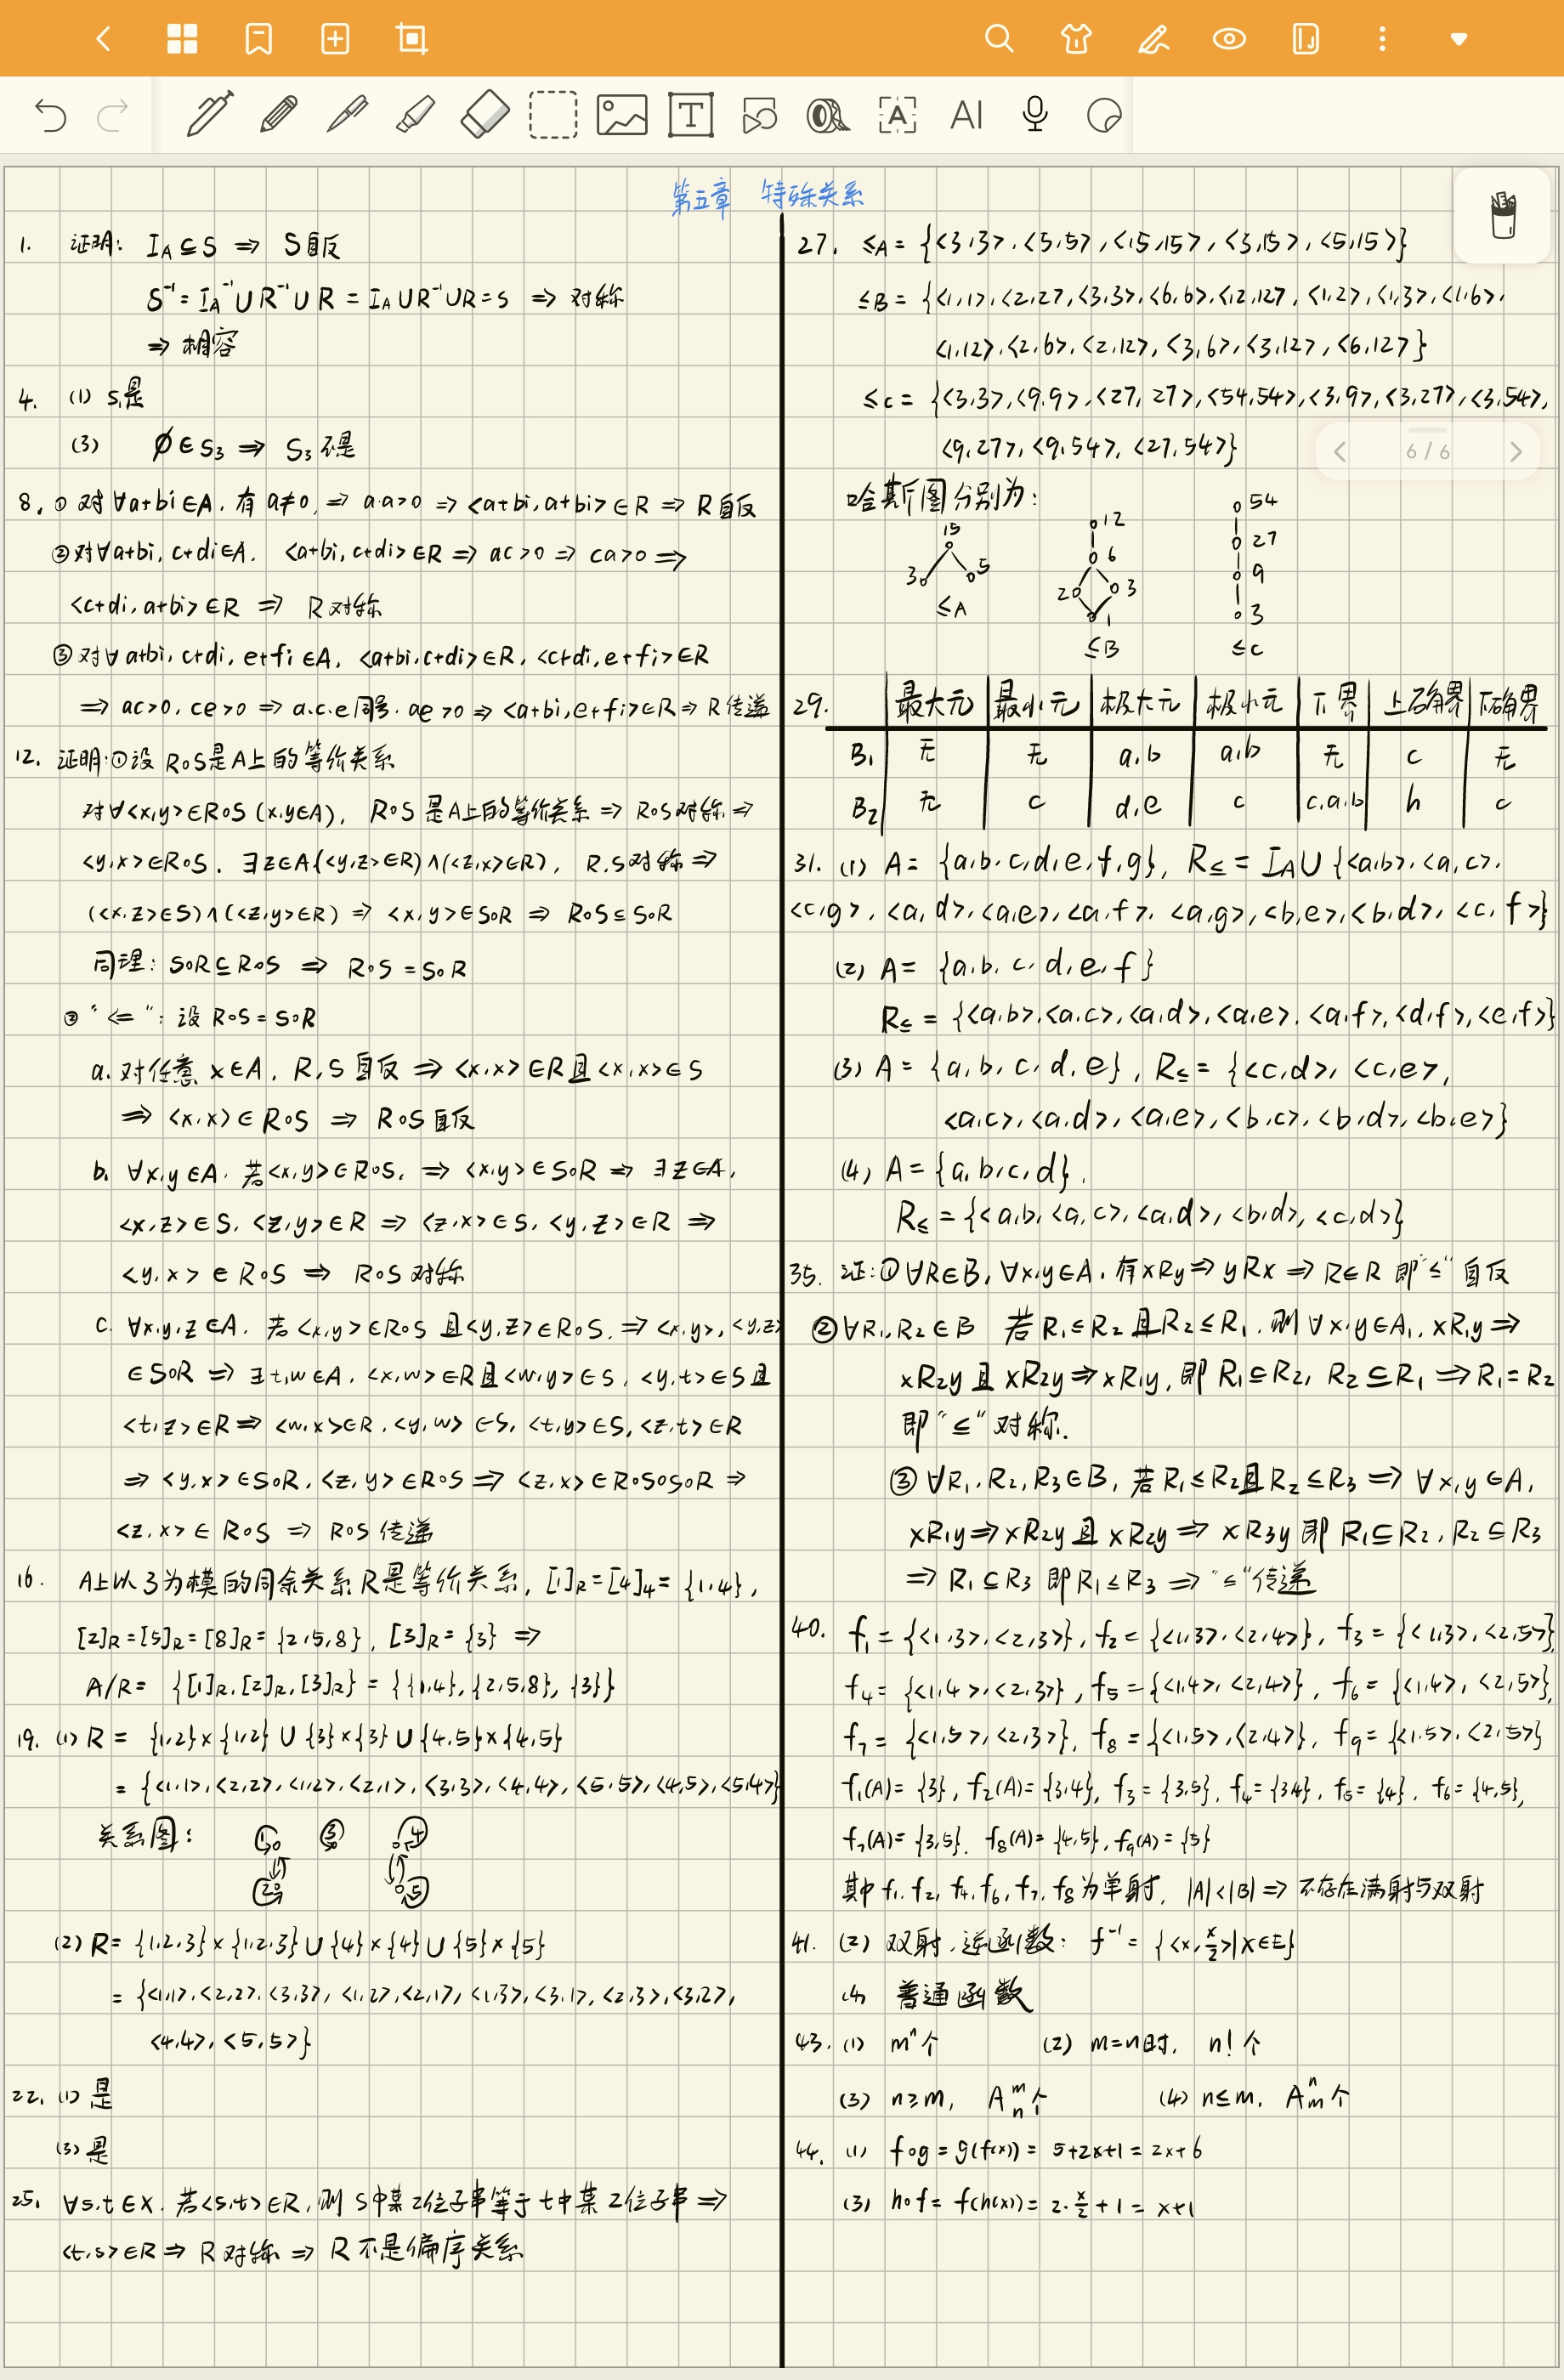 第五章 特殊关系
1. 证明: I_A ⊆ S ⇒ S自反
S⁻¹ = I_A⁻¹ ∪ R⁻¹ ∪ R = I_A ∪ R⁻¹ ∪ R = S ⇒ 对称
⇒ 相容
4. (1) S₁是
(3) ∅ ∈ S₃ ⇒ S₃不是
8. ① 对∀a+bi∈A, 有a≠0, ⇒ a·a>0 ⇒ <a+bi, a+bi>∈R ⇒ R自反
②对∀a+bi, c+di∈A. <a+bi, c+di>∈R ⇒ ac>0 ⇒ ca>0 ⇒
<c+di, a+bi>∈R ⇒ R对称
③对∀a+bi, c+di, e+fi∈A, <a+bi, c+di>∈R, <c+di, e+fi>∈R
⇒ ac>0, ce>0 ⇒ a.c.e同号. ae>0 ⇒ <a+bi, e+fi>∈R ⇒ R传递
12. 证明:①设R∘S是A上的等价关系
对∀<x,y>∈R∘S (x,y∈A), R∘S是A上的等价关系 ⇒ R∘S对称 ⇒
<y,x>∈R∘S. ∃z∈A(<y,z>∈R)∧(<z,x>∈R), R.S对称 ⇒
(<x,z>∈S)∧(<z,y>∈R) ⇒ <x,y>∈S∘R ⇒ R∘S⊆S∘R
同理: S∘R⊆R∘S ⇒ R∘S = S∘R
② "⇐": 设R∘S=S∘R
a. 对任意x∈A, R,S自反 ⇒ <x,x>∈R且<x,x>∈S
⇒ <x,x>∈R∘S ⇒ R∘S自反
b. ∀x,y∈A. 若<x,y>∈R∘S, ⇒ <x,y>∈S∘R ⇒ ∃z∈A,
<x,z>∈S, <z,y>∈R ⇒ <z,x>∈S, <y,z>∈R ⇒
<y,x>∈R∘S ⇒ R∘S对称
c. ∀x,y,z∈A. 若<x,y>∈R∘S 且<y,z>∈R∘S, ⇒ <x,y>, <y,z>
∈S∘R ⇒ ∃t,w∈A, <x,w>∈R且<w,y>∈S, <y,t>∈S且
<t,z>∈R ⇒ <w,x>∈R, <y,w>∈S, <t,y>∈S, <z,t>∈R
⇒ <y,x>∈S∘R, <z,y>∈R∘S ⇒ <z,x>∈R∘S∘S∘R ⇒
<z,x>∈R∘S ⇒ R∘S传递
16. A上以3为模的同余关系R是等价关系, [1]_R=[4]₄={1,4},
[2]_R=[5]_R=[8]_R={2,5,8}, [3]_R={3} ⇒
A/R= {[1]_R,[2]_R,[3]_R} = {{1,4},{2,5,8},{3}}
19. (1) R = {1,2}×{1,2} ∪ {3}×{3} ∪ {4,5}×{4,5}
= {<1,1>,<2,2>,<1,2>,<2,1>,<3,3>,<4,4>,<5,5>,<4,5>,<5,4>}
关系图: 1 3 4
2 5
(2) R= {1,2,3}×{1,2,3} ∪ {4}×{4} ∪ {5}×{5}
= {<1,1>,<2,2>,<3,3>,<1,2>,<2,1>,<1,3>,<3,1>,<2,3>,<3,2>,
<4,4>,<5,5>}
22. (1)是
(3)是
25. ∀s,t∈X. 若<s,t>∈R, 则s中某2位子串等于t中某2位子串 ⇒
<t,s>∈R ⇒ R对称 ⇒ R不是偏序关系
27. ≤A = {<3,3>,<5,5>,<15,15>,<3,15>,<5,15>}
≤B = {<1,1>,<2,2>,<3,3>,<6,6>,<12,12>,<1,2>,<1,3>,<1,6>,
<1,12>,<2,6>,<2,12>,<3,6>,<3,12>,<6,12>}
≤C = {<3,3>,<9,9>,<27,27>,<54,54>,<3,9>,<3,27>,<3,54>,
<9,27>,<9,54>,<27,54>}
6 / 6
哈斯图分别为:
15 12 54
6 27
3 5 2 3 9
1 3
≤A ≤B ≤C
29. 最大元 最小元 极大元 极小元 下界 上确界 下确界
B₁ 无 无 a,b a,b 无 c 无
B₂ 无 c d,e c c,a,b h c
31. (1) A = {a,b,c,d,e,f,g}, R≤ = I_A∪{<a,b>,<a,c>,
<c,g>,<a,d>,<a,e>,<a,f>,<a,g>,<b,e>,<b,d>,<c,f>}
(2) A = {a,b,c,d,e,f}
R≤ = {<a,b>,<a,c>,<a,d>,<a,e>,<a,f>,<d,f>,<e,f>}
(3) A = {a,b,c,d,e}, R≤ = {<c,d>,<c,e>,
<a,c>,<a,d>,<a,e>,<b,c>,<b,d>,<b,e>}
(4) A = {a,b,c,d},
R≤ = {<a,b,<a,c>,<a,d>,<b,d>,<c,d>}
35. 证:①∀R∈B, ∀x,y∈A, 有xRy ⇒ yRx ⇒ R∈R 即"≤"自反
②∀R₁,R₂∈B 若R₁≤R₂且R₂≤R₁, 则∀x,y∈A₁, xR₁y ⇒
xR₂y 且 xR₂y ⇒ xR₁y, 即R₁⊆R₂, R₂⊆R₁ ⇒ R₁=R₂
即"≤"对称.
③∀R₁,R₂,R₃∈B, 若R₁≤R₂且R₂≤R₃ ⇒ ∀x,y∈A,
xR₁y ⇒ xR₂y 且 xR₂y ⇒ xR₃y 即R₁⊆R₂, R₂⊆R₃
⇒ R₁⊆R₃ 即R₁≤R₃ ⇒ "≤"传递
40. f₁={<1,3>,<2,3>}, f₂={<1,3>,<2,4>}, f₃={<1,3>,<2,5>},
f₄={<1,4>,<2,3>}, f₅={<1,4>,<2,4>}, f₆={<1,4>,<2,5>},
f₇={<1,5>,<2,3>}, f₈={<1,5>,<2,4>}, f₉={<1,5>,<2,5>}
f₁(A)={3}, f₂(A)={3,4}, f₃={3,5}, f₄={3,4}, f₅={4}, f₆={4,5},
f₇(A)={3,5}, f₈(A)={4,5}, f₉(A)={5}
其中f₁,f₂,f₄,f₆,f₇,f₈为单射, |A|<|B| ⇒ 不存在满射与双射
41. (2) 双射, 逆函数: f⁻¹ = {<x, x/2>|x∈E}
(4) 普通函数
43. (1) mⁿ个 (2) m=n时, n!个
(3) n≥m, Aₙᵐ个 (4) n≤m, Aₘⁿ个
44. (1) f∘g = g(f(x)) = 5+2x+1 = 2x+6
(3) h∘f = f(h(x)) = 2·x/2+1 = x+1